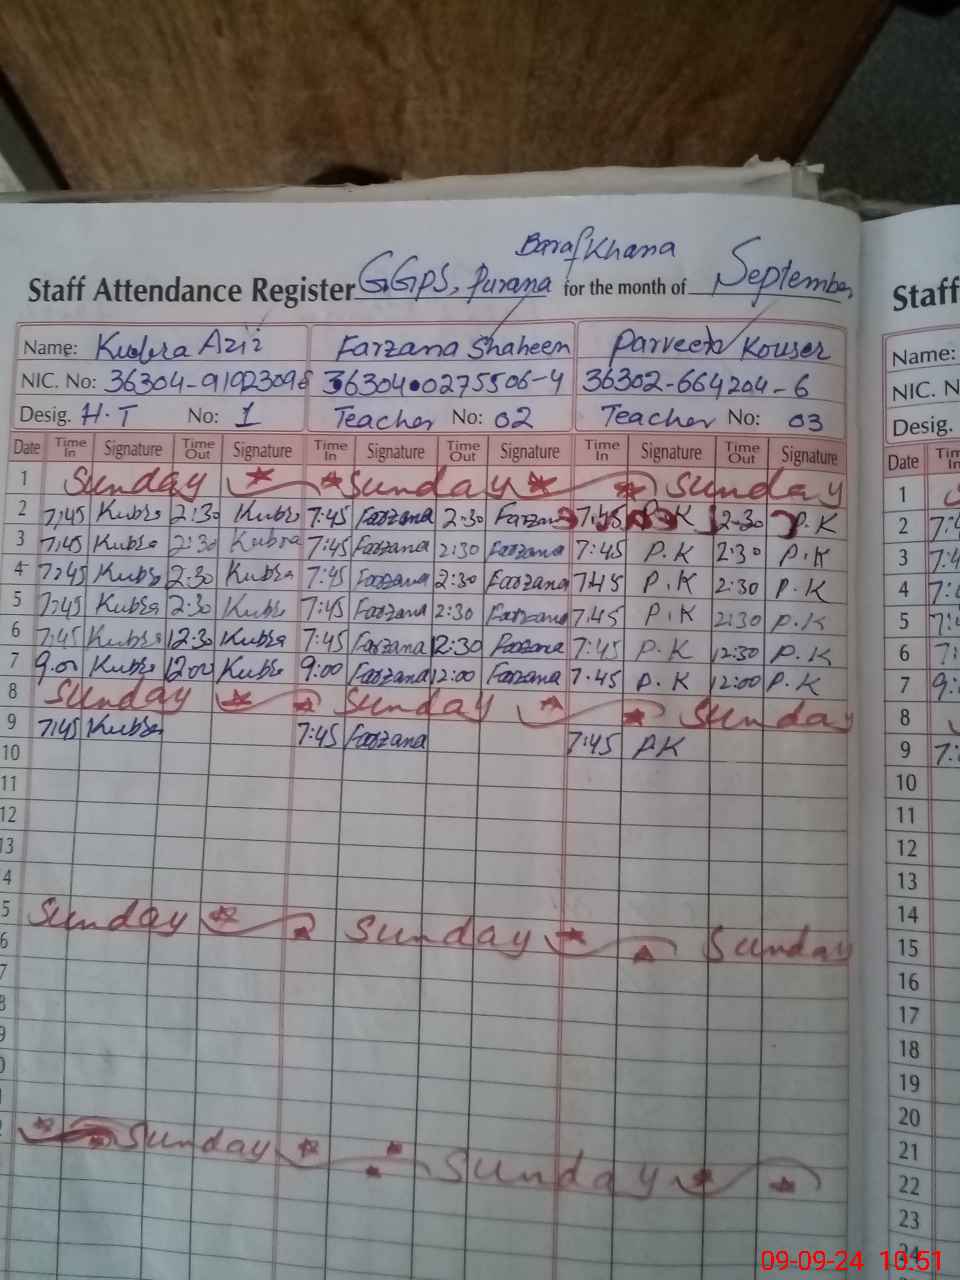 Baraf Khana
Staff Attendance Register GGPS, Purana for the month of September
Name: Kubra Aziz Farzana Shaheen Parveen Kouser
NIC. No: 36304-9192309 36304-0275506-4 36302-664204-6
Desig. H.T No: 1 Teacher No: 02 Teacher No: 03
Date Time In Signature Time Out Signature Time In Signature Time Out Signature Time In Signature Time Out Signature
1 Sunday Sunday Sunday
2 7:45 Kubra 2:30 Kubra 7:45 Farzana 2:30 Farzana 7:45 P.K 2:30 P.K
3 7:45 Kubra 2:30 Kubra 7:45 Farzana 2:30 Farzana 7:45 P.K 2:30 P.K
4 7:45 Kubra 2:30 Kubra 7:45 Farzana 2:30 Farzana 7:45 P.K 2:30 P.K
5 7:45 Kubra 2:30 Kubra 7:45 Farzana 2:30 Farzana 7:45 P.K 2:30 P.K
6 7:45 Kubra 12:30 Kubra 7:45 Farzana 12:30 Farzana 7:45 P.K 12:30 P.K
7 9:00 Kubra 12:00 Kubra 9:00 Farzana 12:00 Farzana 7:45 P.K 12:00 P.K
8 Sunday Sunday Sunday
9 7:45 Kubra 7:45 Farzana 7:45 P.K
10
11
12
13
4
5 Sunday Sunday Sunday
6
7
8
9
0
Sunday Sunday
Staff
Name:
NIC. N
Desig.
Date Time In
1
2 7:4
3 7:4
4 7:
5 7:4
6 7:
7 9:
8
9 7:
10
11
12
13
14
15
16
17
18
19
20
21
22
23
24
09-09-24 10:51